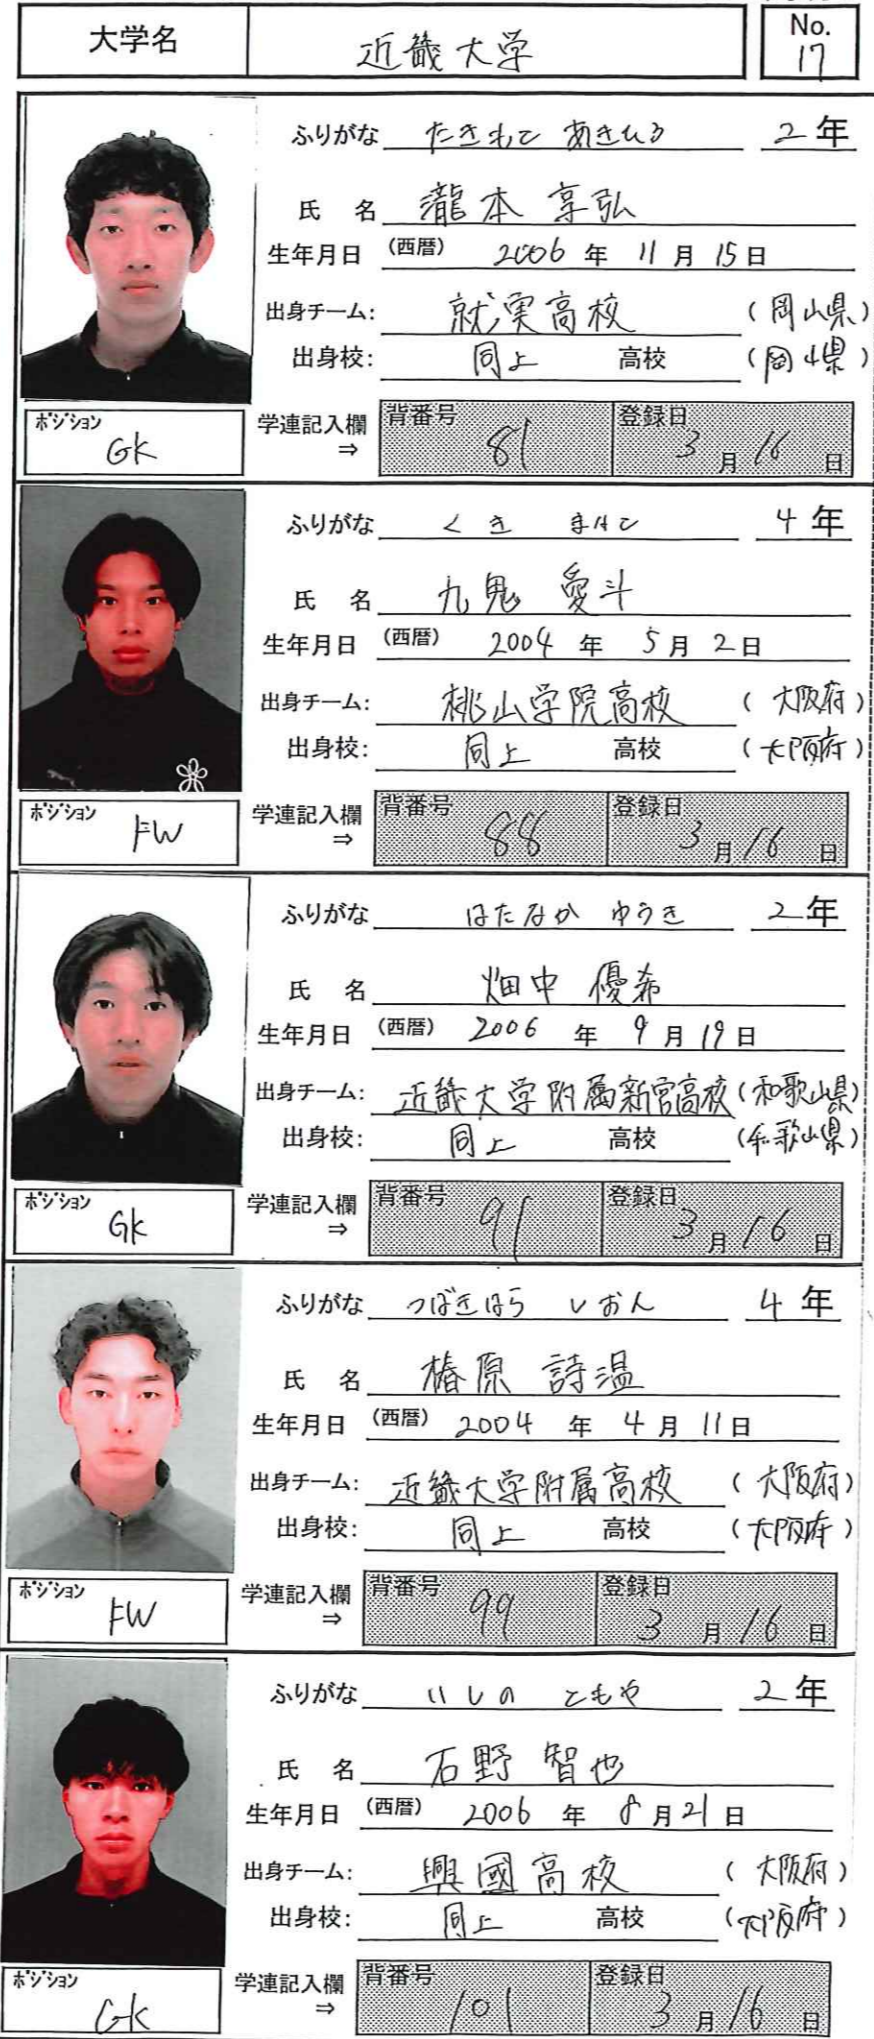 大学名 近畿大学 No. 17
ふりがな たきもと あきひろ 2年
氏 名 瀧本 享弘
生年月日 (西暦) 2006 年 11 月 15 日
出身チーム: 就実高校 (岡山県)
出身校: 同上 高校 (岡山県)
ポジション GK 学連記入欄 ⇒ 背番号 81 登録日 3 月 16 日
ふりがな くき まなと 4年
氏 名 九鬼 愛斗
生年月日 (西暦) 2004 年 5 月 2 日
出身チーム: 桃山学院高校 (大阪府)
出身校: 同上 高校 (大阪府)
ポジション FW 学連記入欄 ⇒ 背番号 88 登録日 3 月 16 日
ふりがな はたなか ゆうき 2年
氏 名 畑中 優希
生年月日 (西暦) 2006 年 9 月 19 日
出身チーム: 近畿大学附属新宮高校 (和歌山県)
出身校: 同上 高校 (和歌山県)
ポジション GK 学連記入欄 ⇒ 背番号 91 登録日 3 月 16 日
ふりがな つばきはら しおん 4年
氏 名 椿原 詩温
生年月日 (西暦) 2004 年 4 月 11 日
出身チーム: 近畿大学附属高校 (大阪府)
出身校: 同上 高校 (大阪府)
ポジション FW 学連記入欄 ⇒ 背番号 99 登録日 3 月 16 日
ふりがな いしの ともや 2年
氏 名 石野 智也
生年月日 (西暦) 2006 年 8 月 21 日
出身チーム: 興國高校 (大阪府)
出身校: 同上 高校 (大阪府)
ポジション GK 学連記入欄 ⇒ 背番号 101 登録日 3 月 16 日